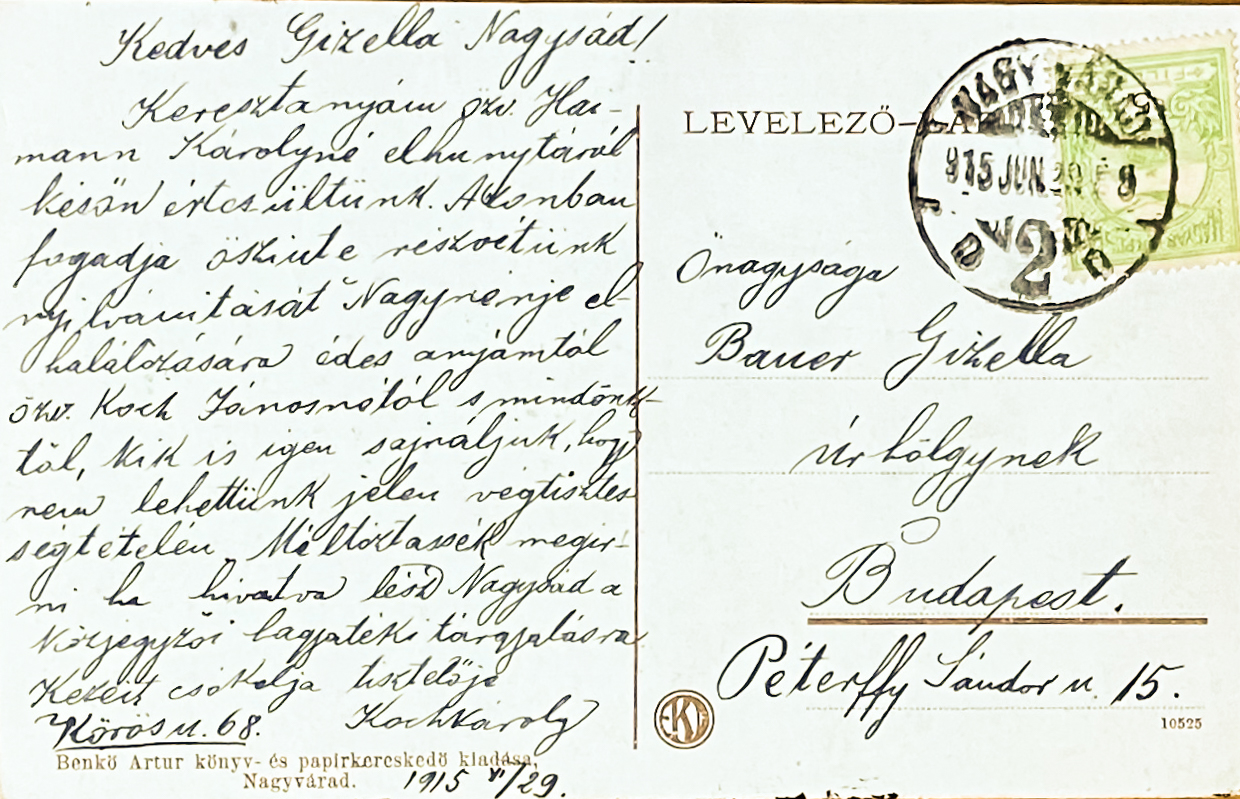 Kedves Gizella Nagysád!
Keresztanyám özv. Har-
mann Károlyné elhunytáról
késön értesültünk. Azonban
fogadja öszinte részvétünk
nyilvánitását Nagynénje el-
halálozására édes anyámtól
özv. Koch Jánosnétól s mindönk-
től, kik is igen sajnáljuk, hogy
nem lehettünk jelen végtisztes
ségtételén. Méltóztassék megir-
ni ha hivatva lesz Nagysád a
közjegyzői hagyatéki tárgyalásra
Kezeit csókolja tisztelője
Körös u. 68. Koch Károly
Benkő Artur könyv- és papirkereskedő kiadása,
Nagyvárad. 1915 VI/29.
LEVELEZŐ-LAP
NAGYVÁRAD
915 JUN 8
2
Önagysága
Bauer Gizella
úrhölgynek
Budapest.
Péterffy Sándor u. 15.
EK
10525